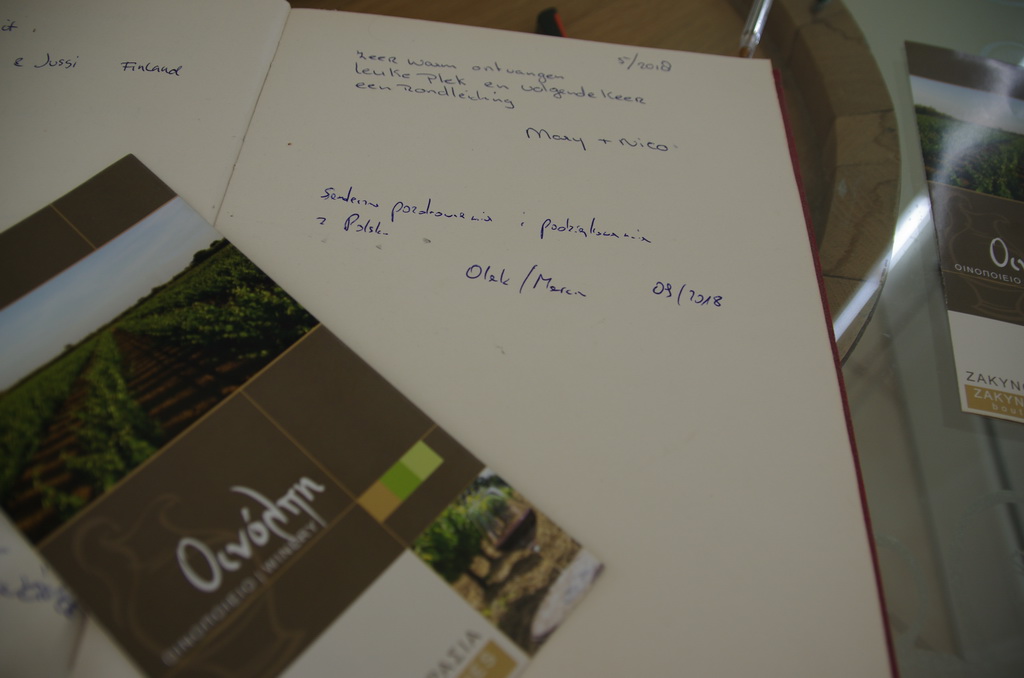 & Jussi Finland
5/2018
zeer warm ontvangen
leuke Plek en volgende keer
een rondleiding
Mary + Nico
Serdeczne pozdrowienia i podziękowania
z Polski
Olek/Marcin 09/2018
Οινόλπη
ΟΙΝΟΠΟΙΕΙΟ | WINERY
ΡΑΣΙΑ
ΟΙΝΟΠΟΙΕΙΟ
ZAKYN
ZAKYN